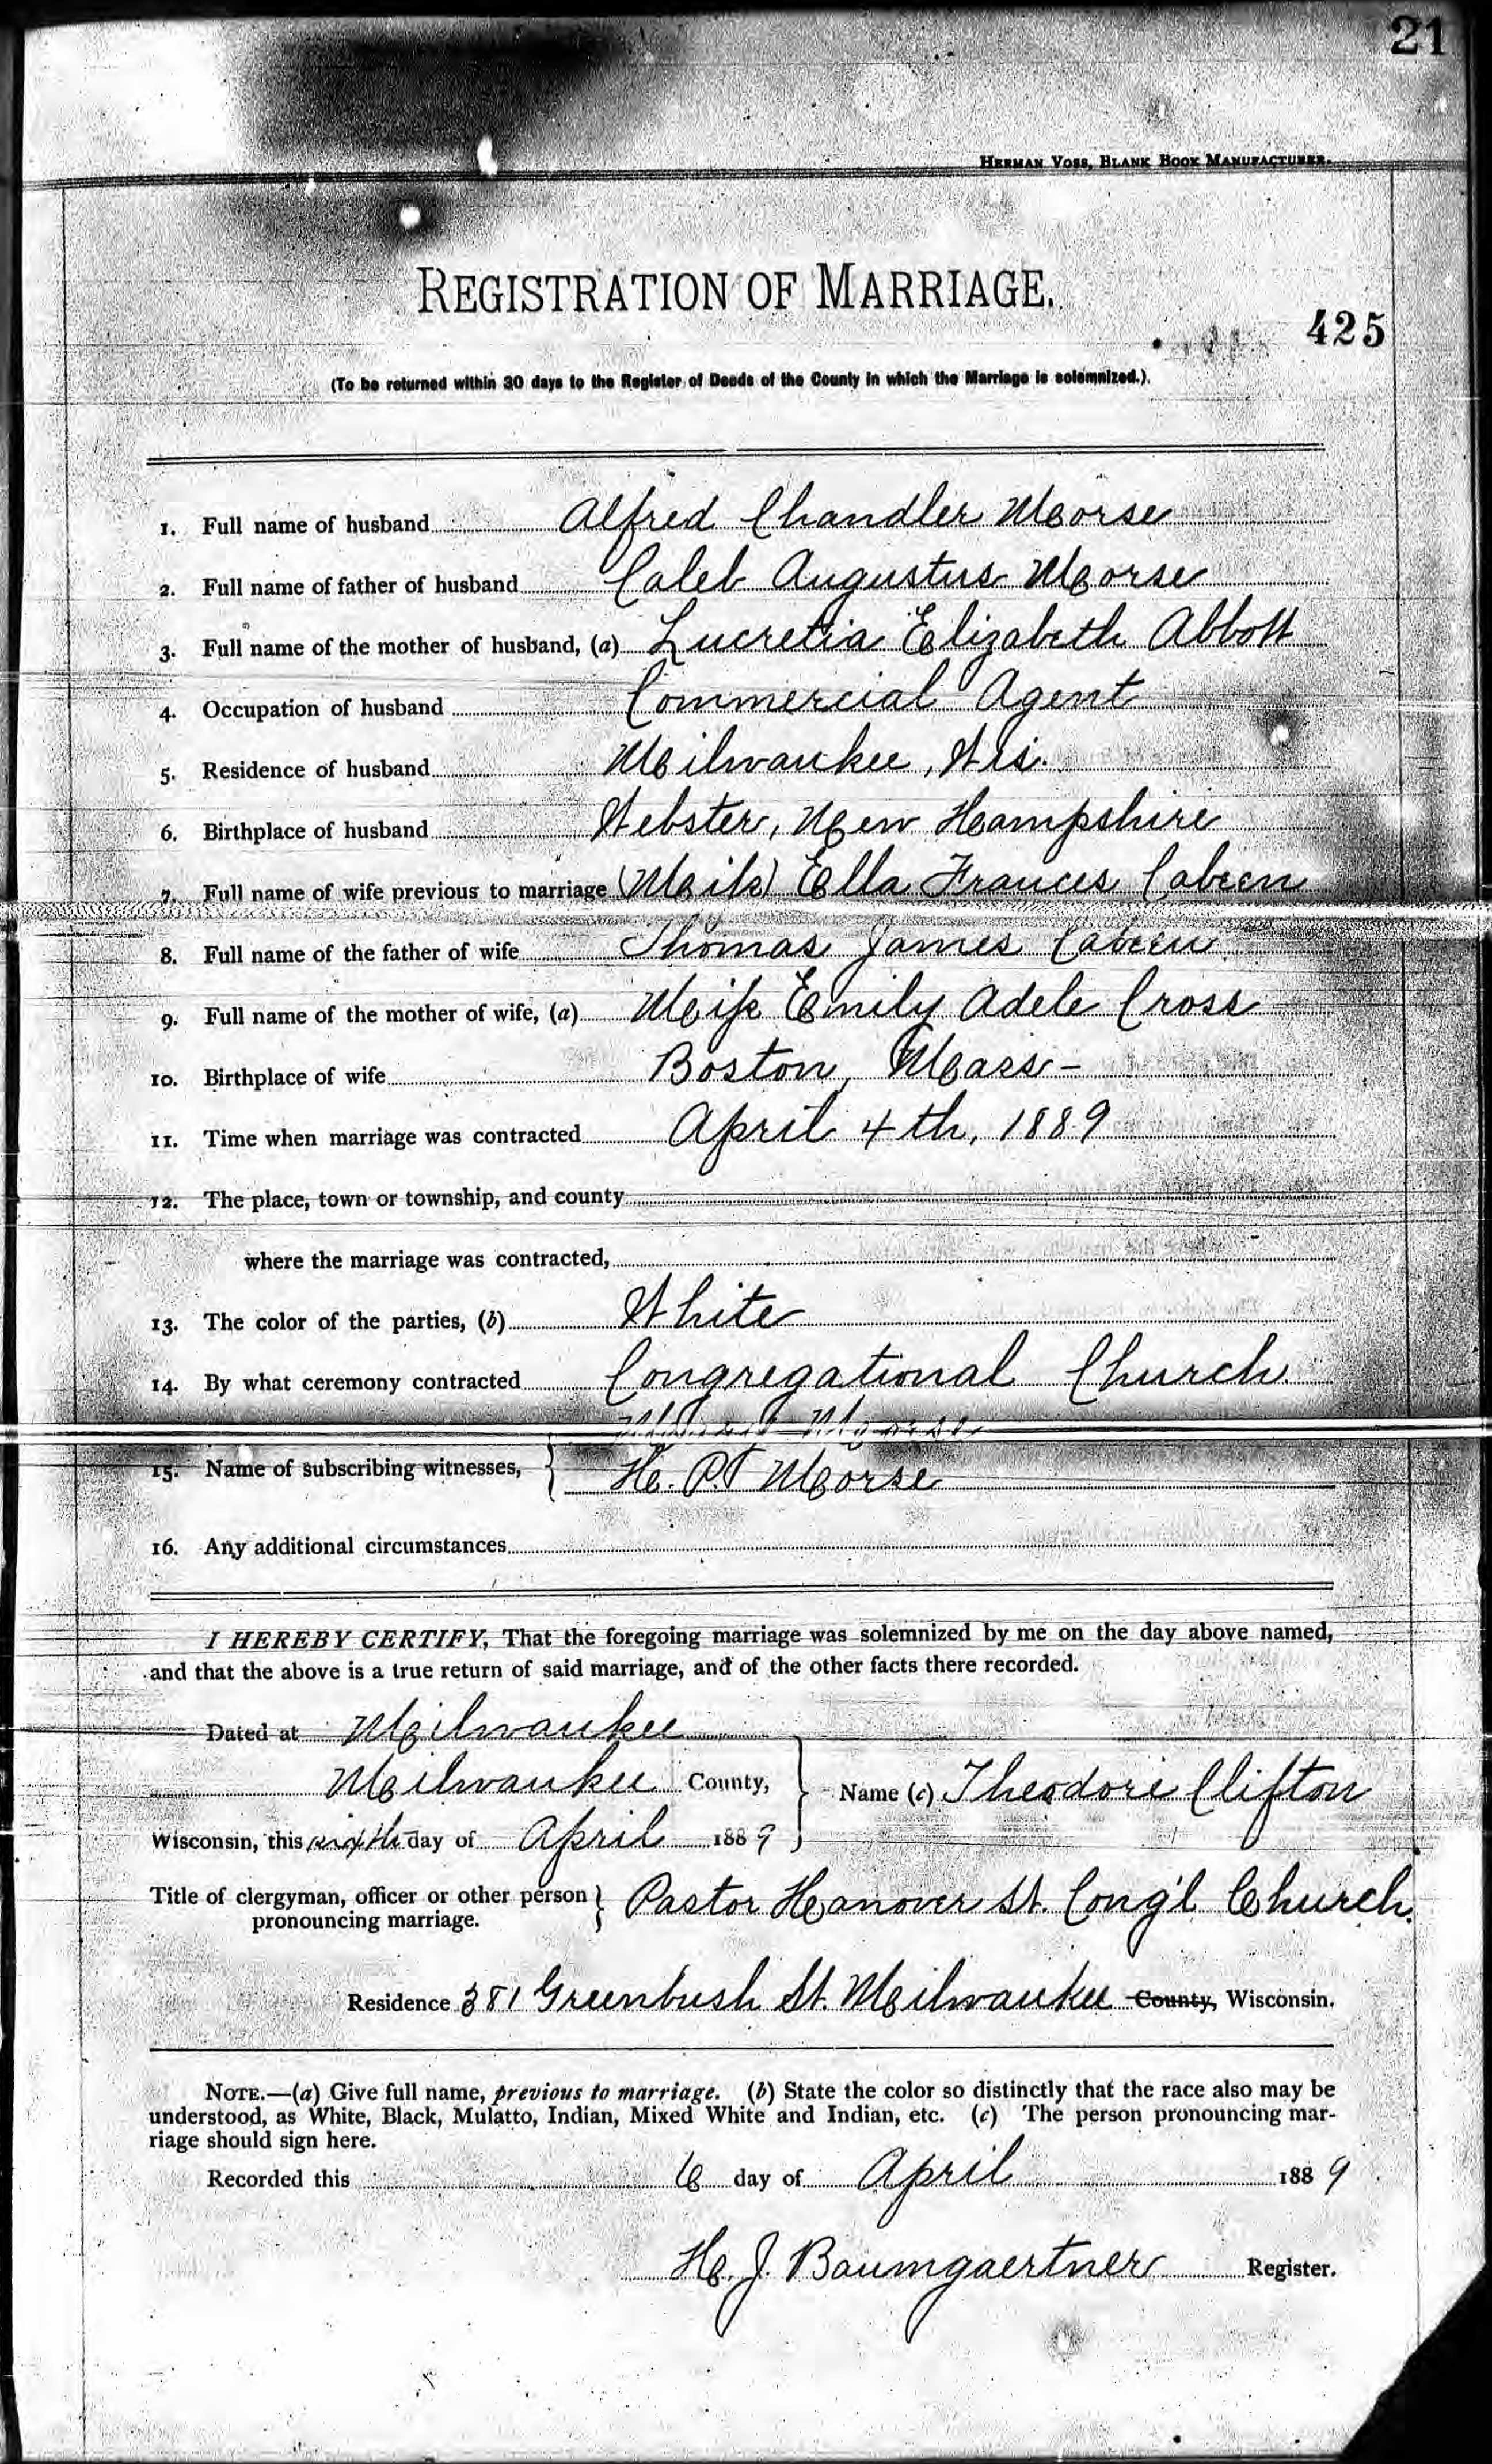 21
HERMAN VOSS, BLANK BOOK MANUFACTURER.
REGISTRATION OF MARRIAGE.
425
(To be returned within 30 days to the Register of Deeds of the County in which the Marriage is solemnized.)
1. Full name of husband Alfred Chandler Morse
2. Full name of father of husband Caleb Augustus Morse
3. Full name of the mother of husband, (a) Lucretia Elizabeth Abbott
4. Occupation of husband Commercial Agent
5. Residence of husband Milwaukee, Wis.
6. Birthplace of husband Webster, New Hampshire
7. Full name of wife previous to marriage (Miss) Ella Frances Cabeen
8. Full name of the father of wife Thomas James Cabeen
9. Full name of the mother of wife, (a) Miss Emily Adele Cross
10. Birthplace of wife Boston, Mass-
11. Time when marriage was contracted April 4th, 1889
12. The place, town or township, and county
where the marriage was contracted,
13. The color of the parties, (b) White
14. By what ceremony contracted Congregational Church
Morse
15. Name of subscribing witnesses, H. P. Morse
16. Any additional circumstances
I HEREBY CERTIFY, That the foregoing marriage was solemnized by me on the day above named,
and that the above is a true return of said marriage, and of the other facts there recorded.
Dated at Milwaukee
Milwaukee County, Name (c) Theodore Clifton
Wisconsin, this sixth day of April 1889
Title of clergyman, officer or other person Pastor Hanover St. Cong'l Church.
pronouncing marriage.
Residence 381 Greenbush St. Milwaukee County, Wisconsin.
NOTE.—(a) Give full name, previous to marriage. (b) State the color so distinctly that the race also may be
understood, as White, Black, Mulatto, Indian, Mixed White and Indian, etc. (c) The person pronouncing mar-
riage should sign here.
Recorded this 6 day of April 1889
H. J. Baumgaertner Register.